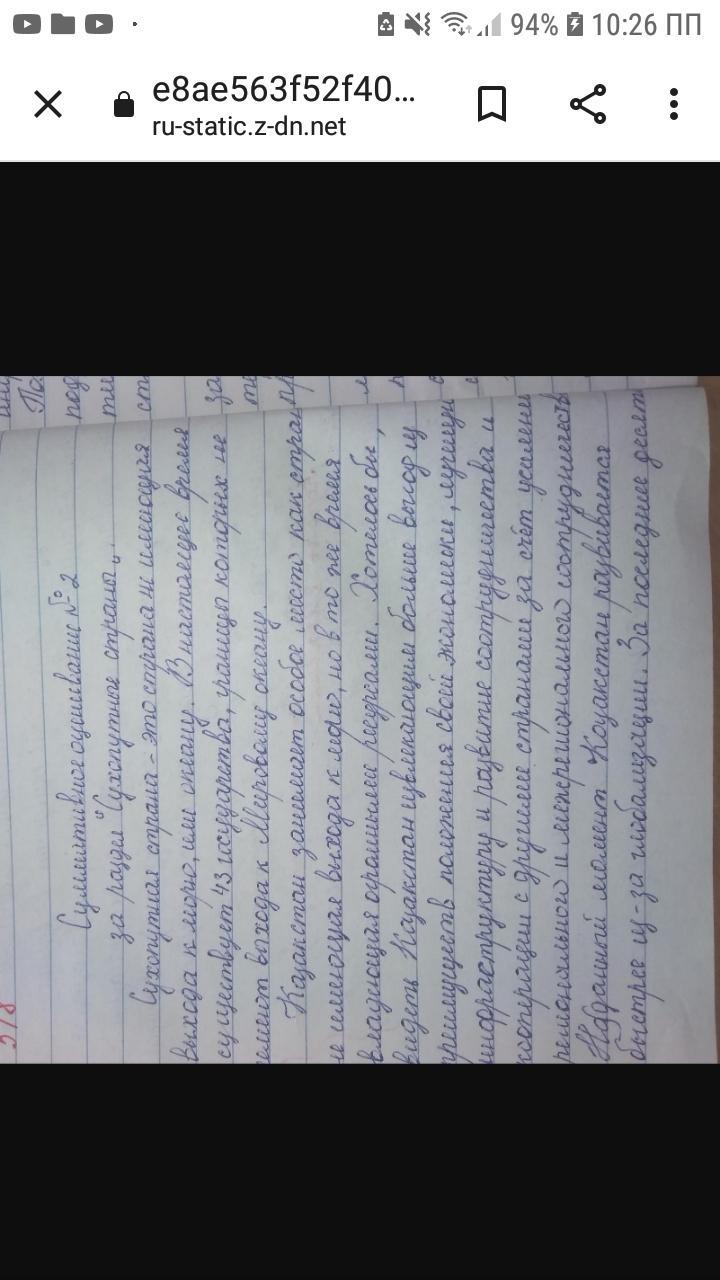 94% 10:26 ПП
e8ae563f52f40...
ru-static.z-dn.net
Суммативное оценивание №2
за раздел "Сухопутные страны".
Сухопутная страна - это страна не имеющая
выхода к морю, или океану. В настоящее время
существует 43 государства, границы которых не
имеют выхода к Мировому океану.
Казахстан занимает особое место как стран
не имеющая выхода к морю, но в то же время
владеющая огромными ресурсами. Хотелось бы,
видеть Казахстан извлекающим больше выгод из
преимуществ положения своей экономики, лучшую
инфраструктуру и развитие сотрудничества и
кооперации с другими странами за счёт усиления
регионального и межрегионального сотрудничеств
На данный момент Казахстан развивается
быстрее из-за глобализации. За последние десят